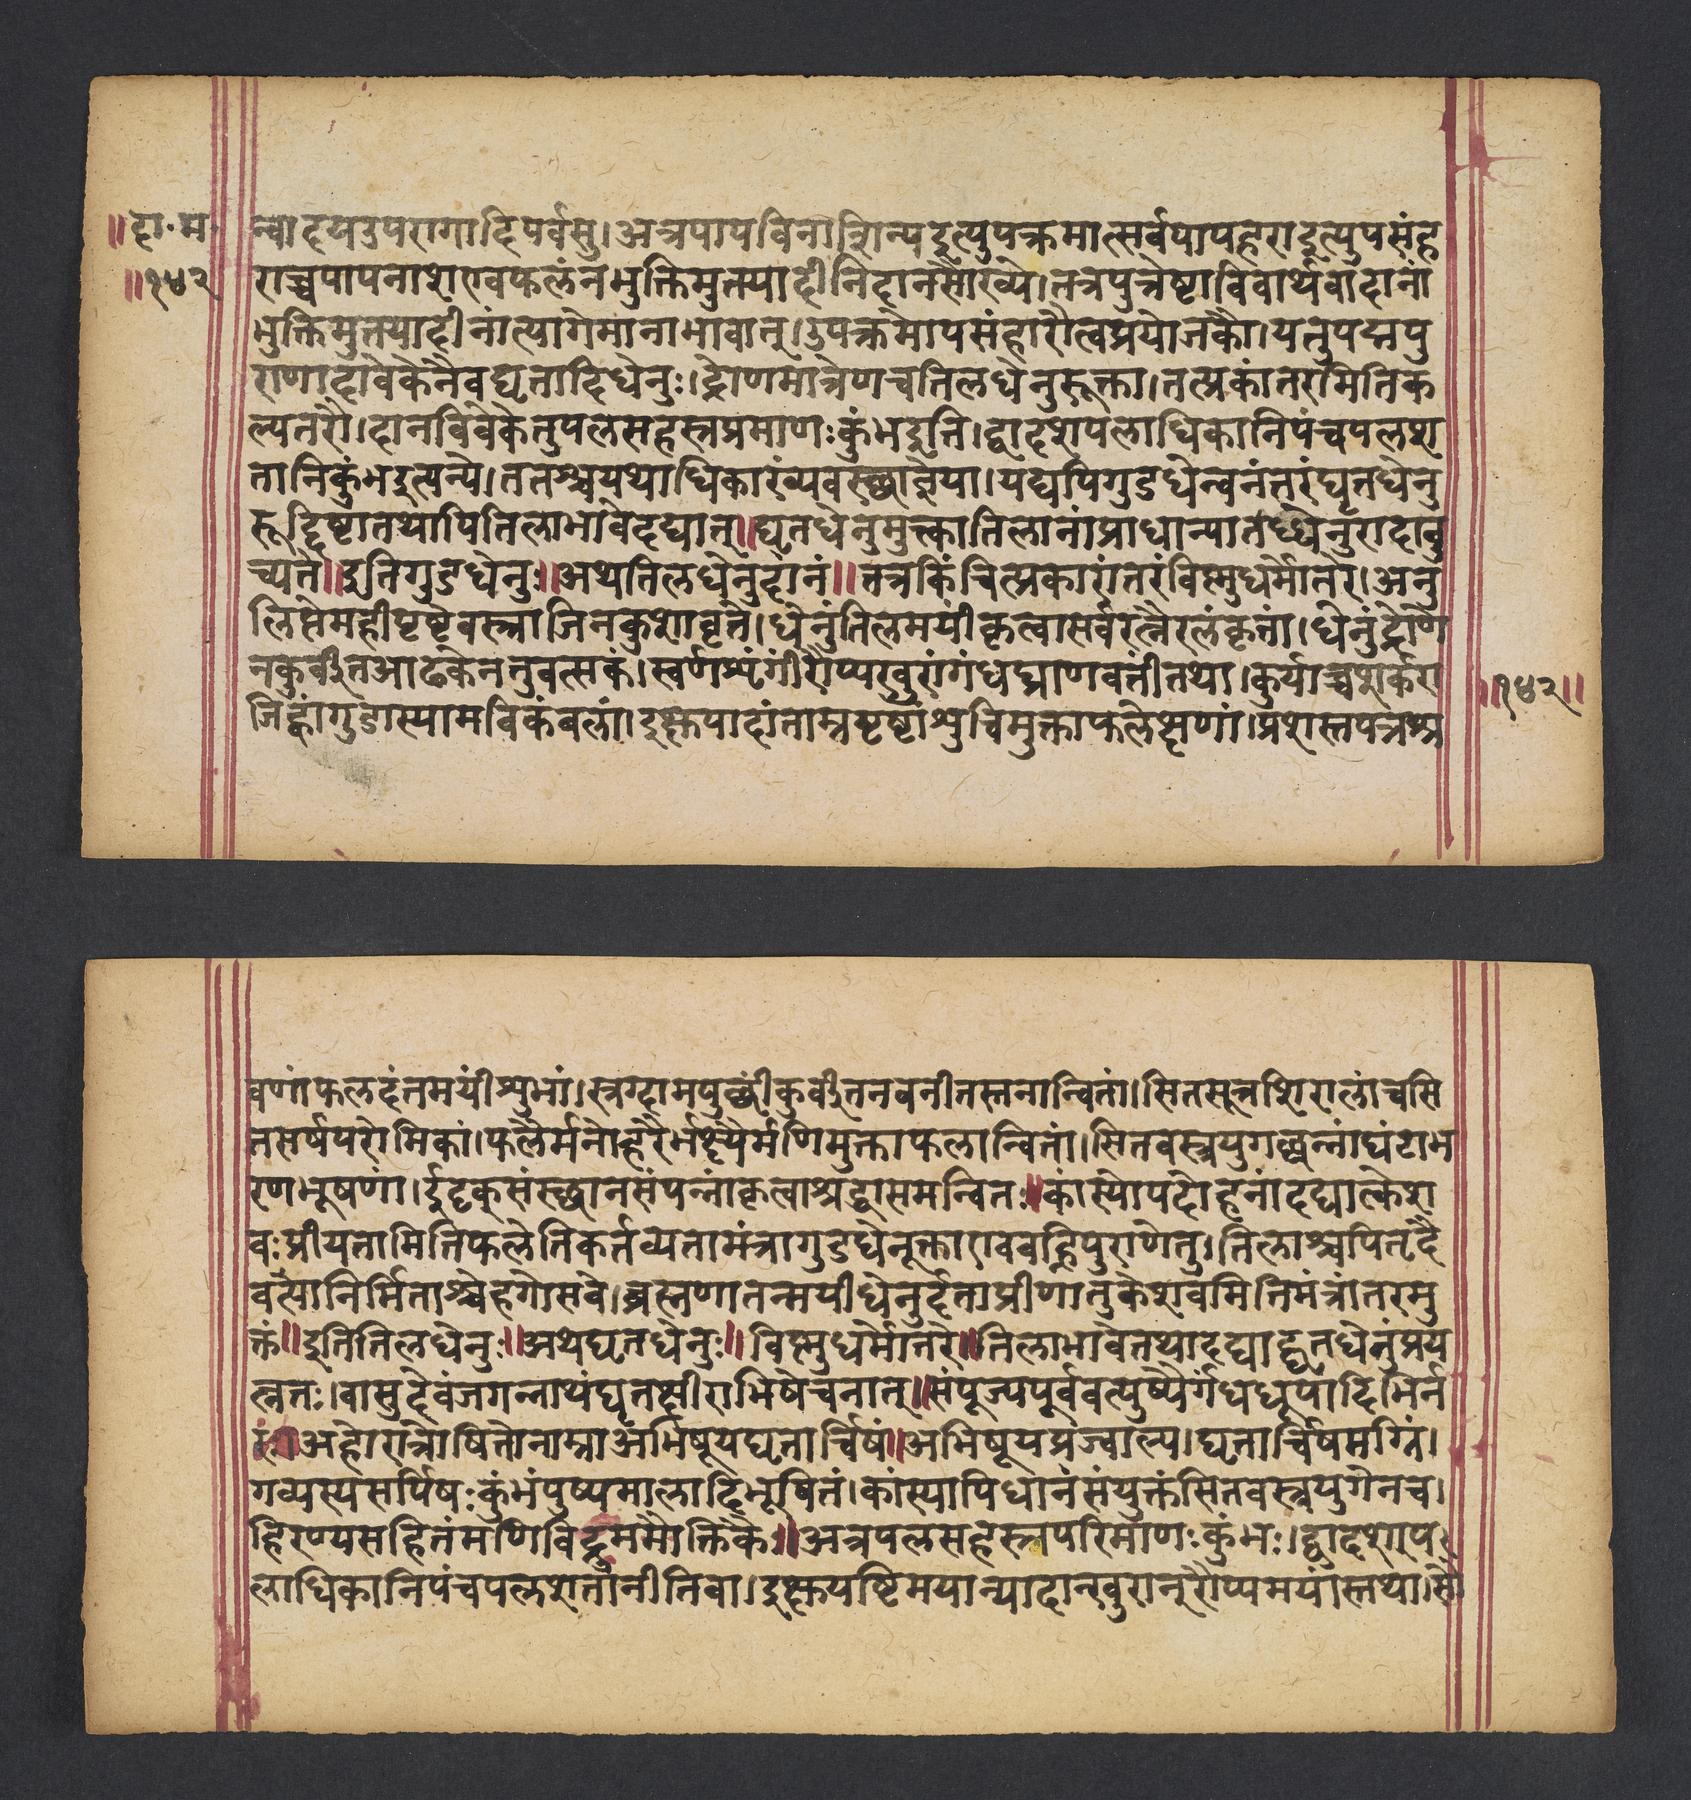 ॥दा.म.
॥१४२
न्वादयउपरागादिपर्वसु।अत्रपापविनाशिन्यइत्युपक्रमात्सर्वपापहराइत्युपसंह
राच्चपापनाशएवफलंनभुक्तिमुक्तयादीनिदानसौख्ये।तत्रपुत्रेष्टाविवार्थवादानां
भुक्तिमुक्तयादीनांत्यागेमानाभावात्।उपक्रमोपसंहारौत्वप्रयोजकौ।यत्तुपद्मपु
राणादावेकेनैवघृतादिधेनुः।द्रोणमात्रेणचतिलधेनुरूक्ता।तत्प्रकांतरमितिक
ल्पतरौ।दानविवेकेतुपलसहस्त्रप्रमाणःकुंभइति।द्वादशपलाधिकानिपंचपलश
तानिकुंभइत्यन्ये।ततश्चयथाधिकारंव्यवस्थाज्ञेया।यद्यपिगुडधेन्वनंतरंघृतधेनु
रूद्दिष्टातथापितिलाभावेदद्यात्॥घृतधेनुमुक्त्कातिलानांप्राधान्यातद्धेनुरादावु
च्यते॥इतिगुडधेनुः॥अथतिलधेनुदानं॥तत्रकिंचित्प्रकारांतरंविष्णुधर्मोतरे।अनु
लिप्तेमहीपृष्टेवस्त्राजिनकुशावृते।धेनुंतिलमयींकृत्वासर्वरत्नैरलंकृतां।धेनुंद्रोणे
नकुर्वीतआढकेनतुवत्सकं।स्वर्णशृंगींरौप्यखुरांगंधघ्राणवतींतथा।कुर्याच्चशर्करा
जिह्वांगुडास्यामविकंबलां।इक्षुपादांताम्रपृष्टांशुचिमुक्ताफलेक्षणां।प्रशस्तपत्रश्र
॥१४२॥
वणांफलदंतमयींशुभां।स्त्रग्दामपुच्छींकुर्वीतनवनीतस्तनान्वितां।सितसूत्रशिरालांचसि
तसर्षपरोमिकां।फलैर्मनोहरैर्भक्ष्यैर्मणिमुक्ताफलान्वितां।सितवस्त्रयुगछन्नांघंटाभ
रणभूषणां।ईदृक्संस्थानसंपन्नांकृत्वाश्रद्धासमन्वितः॥कांस्योपदोहनांदद्यात्केश
वःप्रीयतामितिफलेतिकर्तव्यतामंत्रागुडधेनूक्ताएववह्निपुराणेतु।तिलाश्चपितृदै
वत्यानिर्मिताश्चेहगोसवे।ब्रह्मणातन्मयीधेनुर्दताप्रीणातुकेशवमितिमंत्रांतरमु
क्तं॥इतितिलधेनुः॥अथघृतधेनुः॥विष्णुधर्मोतरे॥तिलाभावेतथादद्याद्घृतधेनुंप्रय
त्नतः।वासुदेवंजगन्नाथंघृतक्षीराभिषेचनात्॥संपूज्यपूर्ववत्पुष्पैर्गंधधूपादिभिर्न
रः।अहोरात्रोषितोनाम्नाअभिष्टूयघृतार्चिषं॥अभिष्टूयप्रज्वाल्य।घृतार्चिषमग्निं।
गव्यस्यसर्पिषःकुंभंपुष्पमालादिभूषितं।कांस्यापिधानंसंयुक्तंसितवस्त्रयुगेनच।
हिरण्यसहितंमणिविद्रुममौक्तिकैः॥अत्रपलसहस्त्रपरिमाणःकुंभः।द्वादशप
लाधिकानिपंचपलशतानीतिवा।इक्षुयष्टिमयान्पादान्खुरान्रौप्यमयांस्तथा।सौ